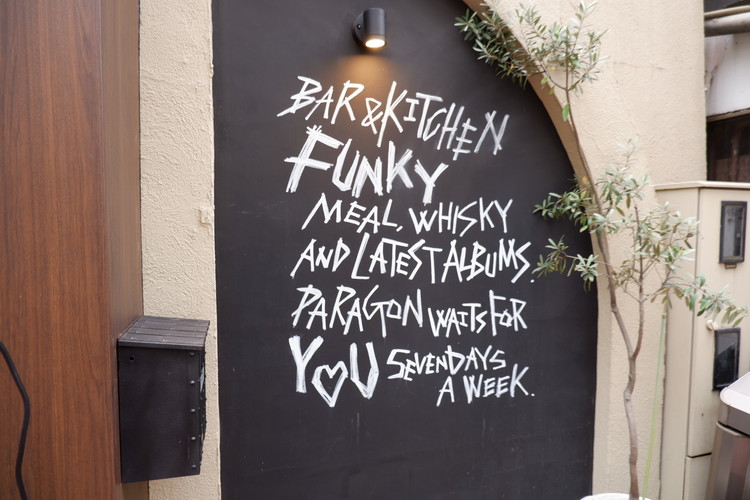 BAR & KITCHEN
FUNKY
MEAL, WHISKY
AND LATEST ALBUMS.
PARAGON WAITS FOR
Y♡U SEVEN DAYS
A WEEK.